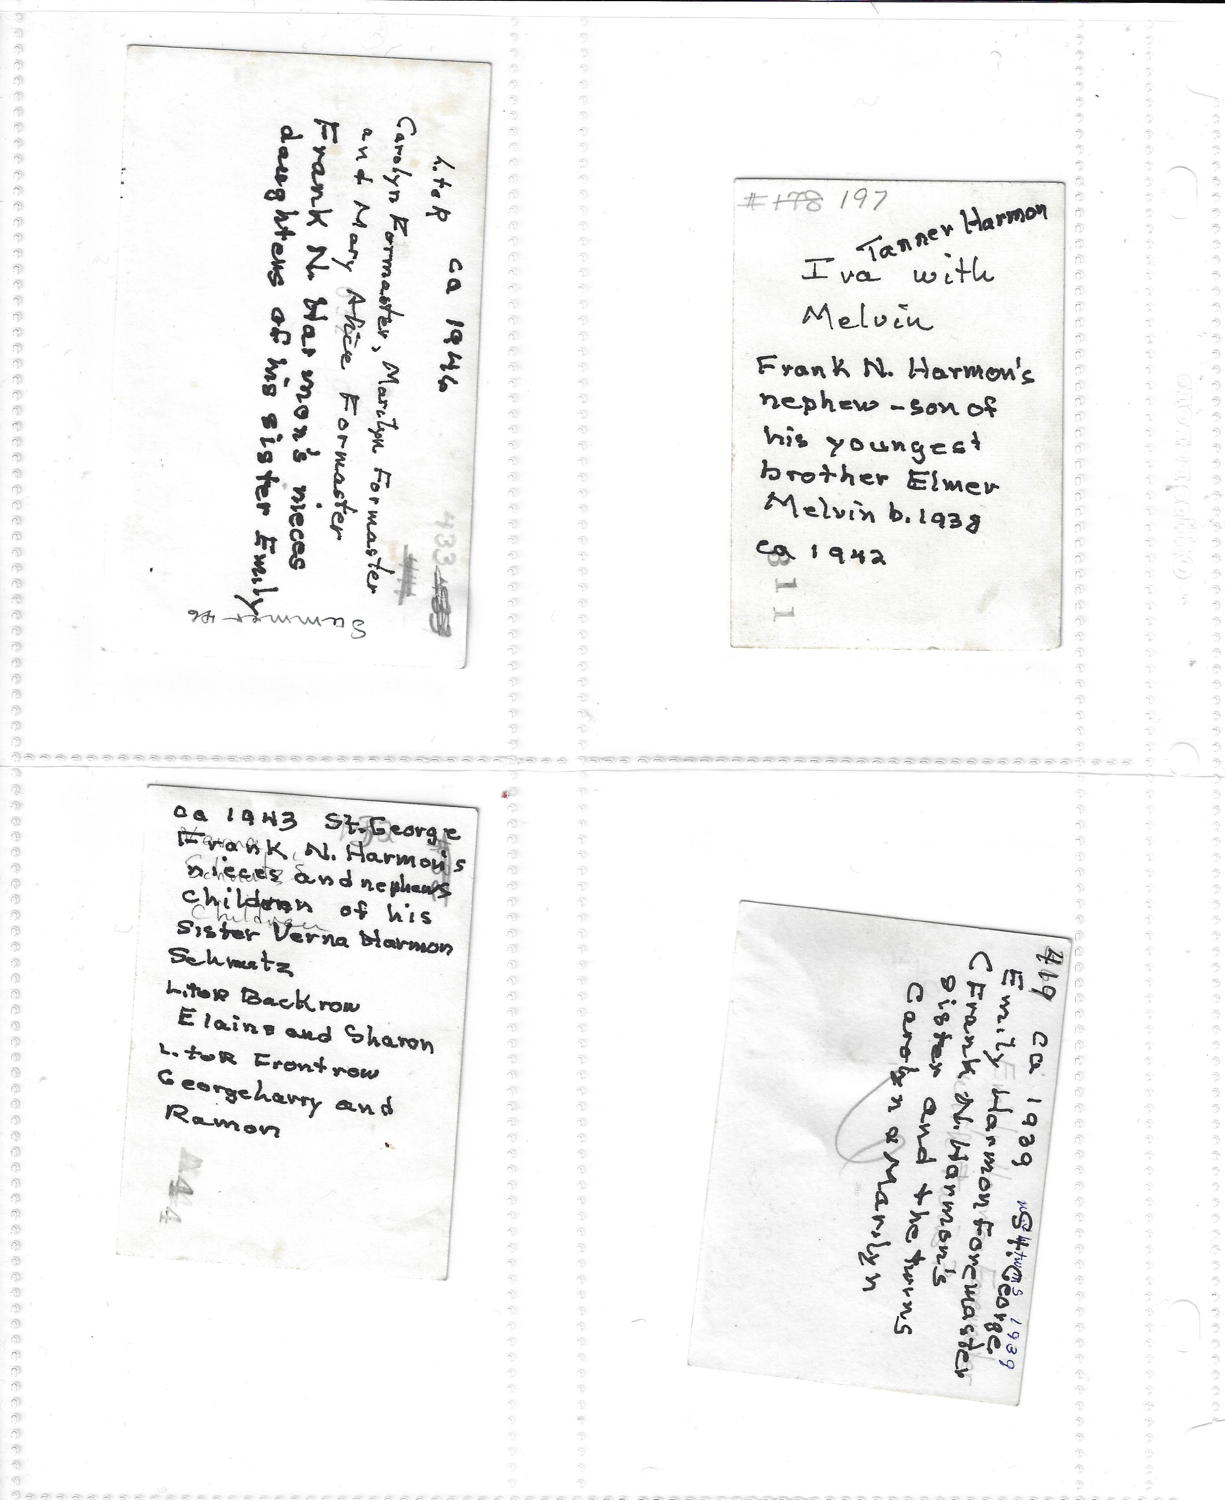 L. to R ca 1946
Carolyn Formaster, Marilyn Formaster
and Mary Alice Formaster
Frank N. Harmon's nieces
daughters of his sister Emily
Summer 46
433
#178 197
Tanner Harmon
Iva with
Melvin
Frank N. Harmon's
nephew - son of
his youngest
brother Elmer
Melvin b. 1938
ca 1942
811
ca 1943 St. George
Frank N. Harmon's
nieces and nephews
children of his
Children
Sister Verna Harmon
Schmutz
L. to R Backrow
Elaine and Sharon
L. to R Frontrow
Georgeharry and
Ramon
419 ca 1939 St. George
twins 1939
Emily Harmon Foremaster
C Frank N. Harmon's
sister and the twins
Carolyn a Marilyn